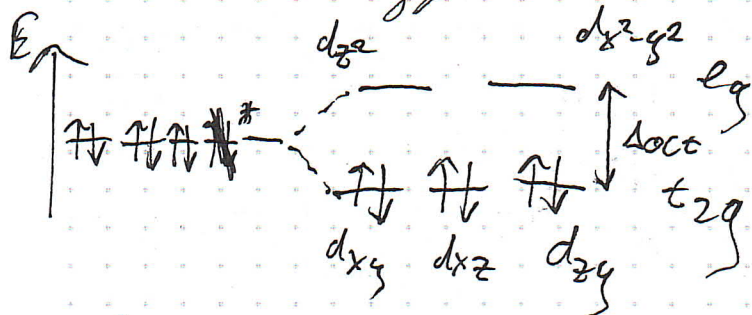 E
dz² dx²-y² eg
*
Δoct
t2g
dxy dxz dzy